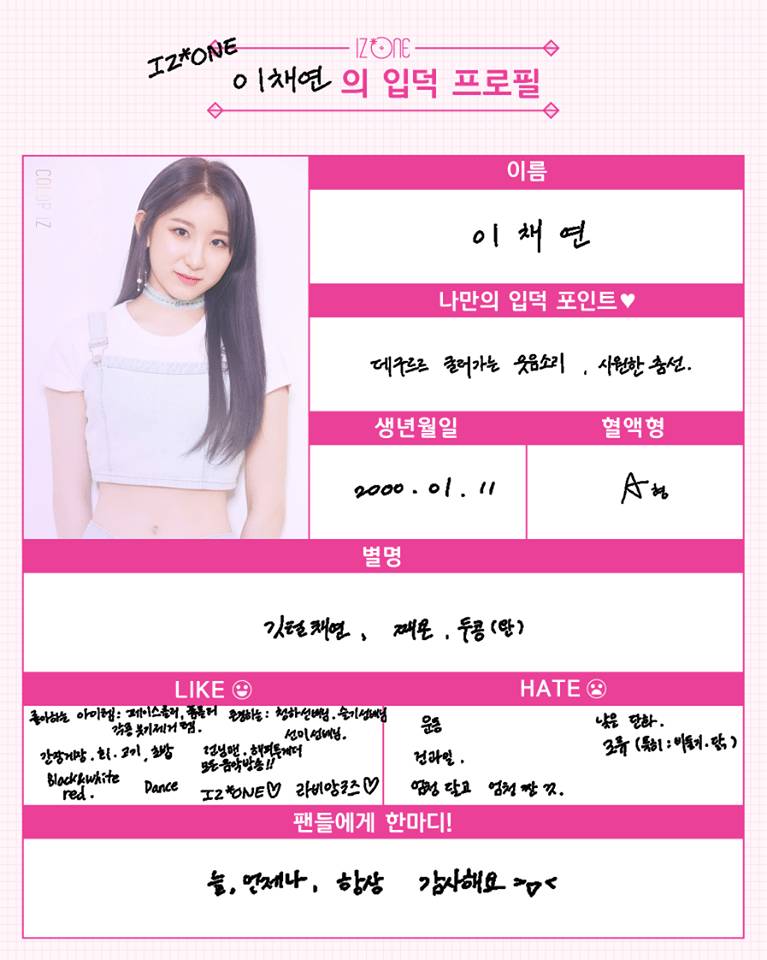 IZ*ONE
IZ*ONE
이채연의 입덕 프로필
COLOR IZ
이름
이 채 연
나만의 입덕 포인트♥
데구르르 굴러가는 웃음소리 , 시원한 춤선.
생년월일
혈액형
2000 . 01 . 11
A형
별명
깃털채연, 때온 . 두콩(안)
LIKE
HATE
좋아하는 아이템: 페이스롤러, 폼롤러
각종 붓기제거 템.
존경하는: 청하선배님. 슬기선배님
선미선배님.
간장게장 . 회 . 고기 , 초밥
런닝맨 . 해피투게더
모든음악방송!!
Black&white
red .
Dance
IZ*ONE♡
라비앙로즈♡
운동
낮은 단화 .
건과일 .
조류 (특히 : 비둘기 . 닭;)
엄청 달고 엄청 짠 것.
팬들에게 한마디!
늘, 언제나, 항상 감사해요 >▽<